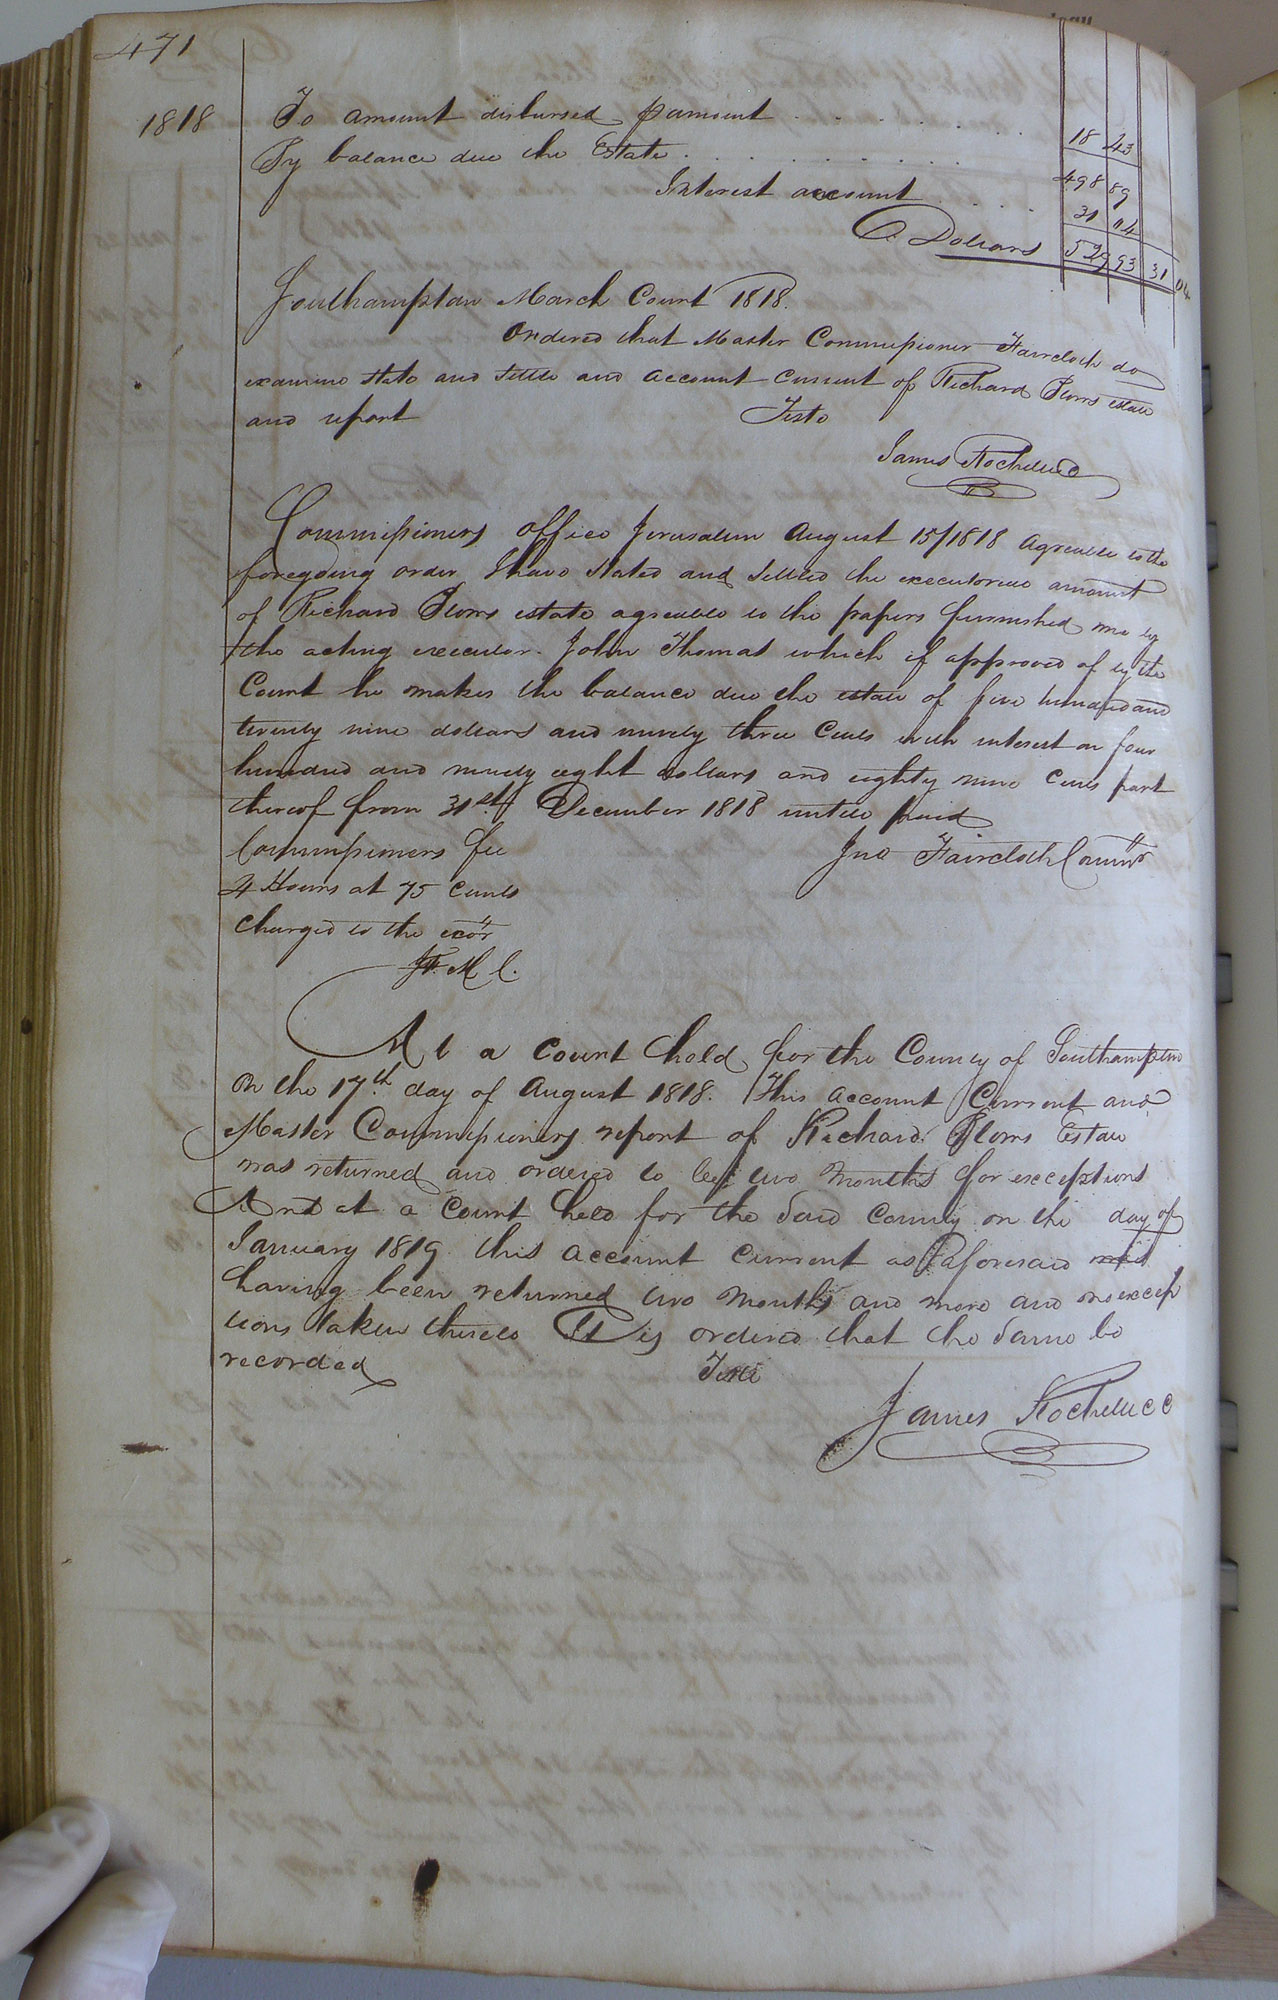 471
1818 To amount disbursed pamount . . . . . . . . . 18 43
By balance due the Estate . . . . . . . . . 498 89
Interest account . . . . 31 04
Dollars 529 93 31 04
Southampton March Court 1818.
Ordered that Master Commissioner Faircloth do
examine State and Settle and account current of Richard estate
and report Teste
James Rochelle
Commissioners office Jerusalem August 15/1818 Agreeable to the
foregoing order I have Stated and Settled the amount
of Richard estate agreeable to the papers furnished me by
the acting executor John Thomas which if approved of by the
Court he makes the balance due the estate of five hundred and
twenty nine dollars and ninety three Cents with interest on four
hundred and ninety eight dollars and eighty nine Cents part
thereof from 31st December 1818 untill paid
Commissioners fee Jno Faircloth Commr
4 Hours at 75 cents
Charged to the exor
At a Court held for the County of Southampton
On the 17th day of August 1818. This Account Current and
Master Commissioners report of Richard Estate
was returned and ordered to two Months for exceptions
And at a Court held for the Said County on the day of
January 1819 this account Current as aforesaid
having been returned two Months and more and no excep
tions taken thereto It is ordered that the Same be
recorded Teste
James Rochelle CC